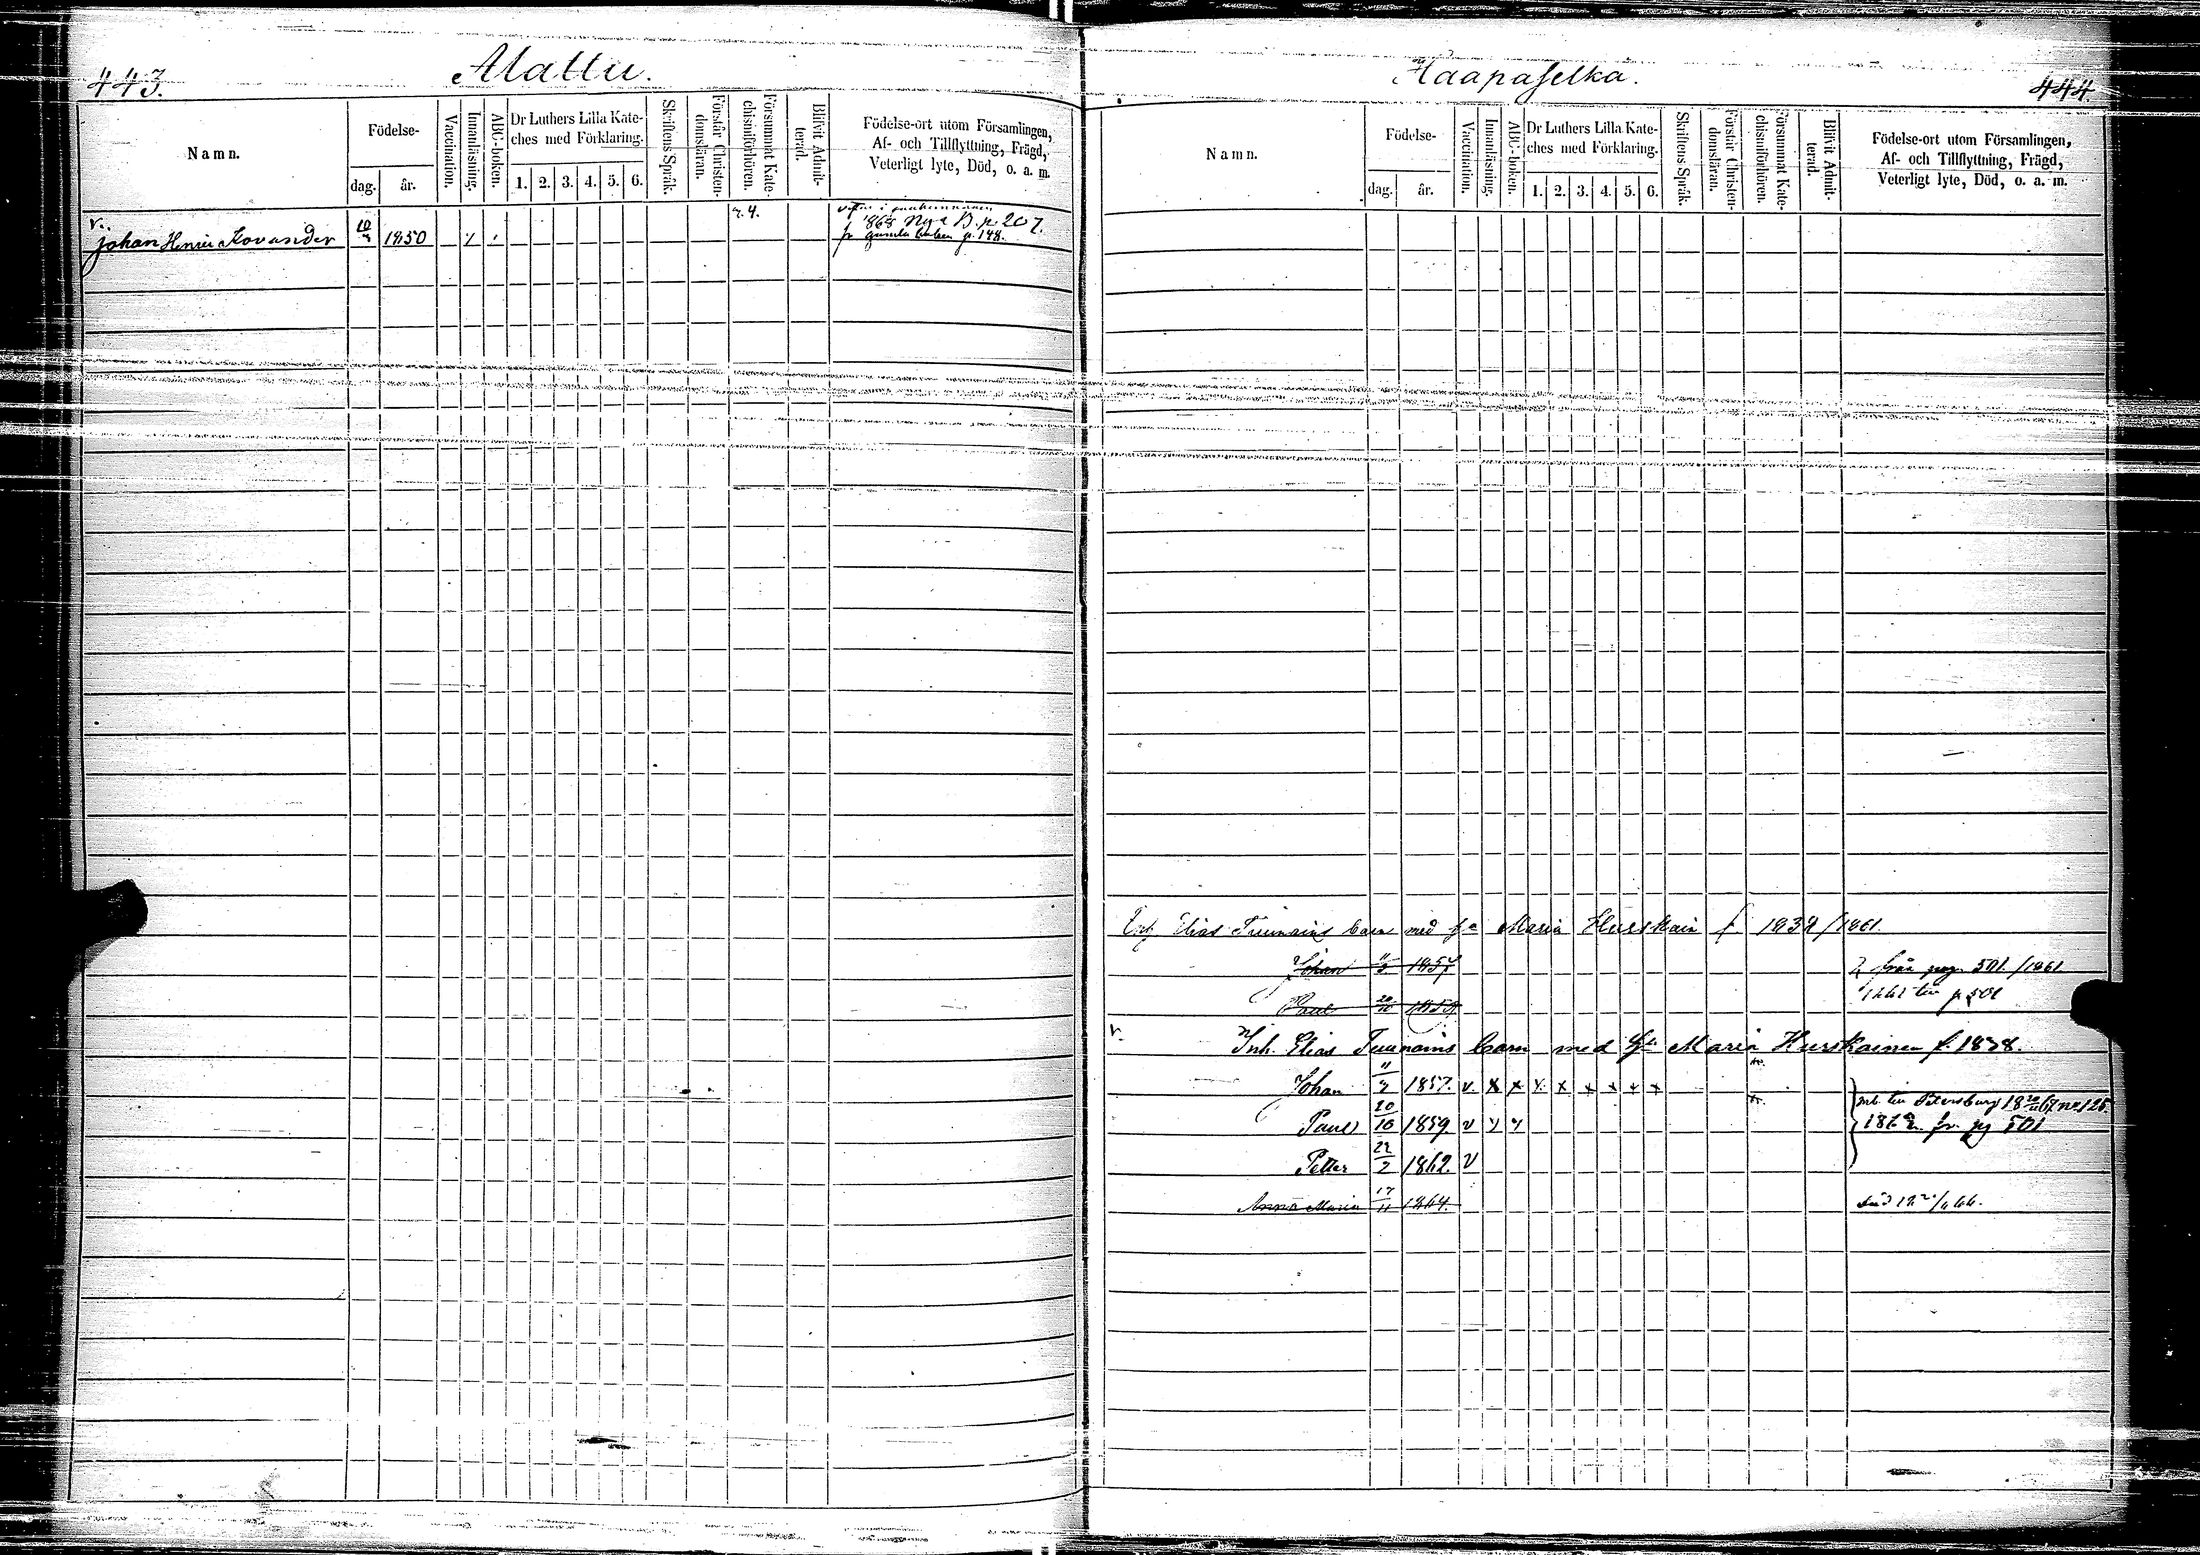 443.
Alattu.
Namn.
Födelse-
dag.
år.
Vaccination.
Innanläsning.
ABC-boken.
Dr Luthers Lilla Kate-
ches med Förklaring.
1. 2. 3. 4. 5. 6.
Skriftens Språk.
Förstår Christen-
domsläran.
Försummat Kate-
chismiförhören.
Blifvit Admit-
terad.
Födelse-ort utom Församlingen,
Af- och Tillflyttning, Frägd,
Veterligt lyte, Död, o. a. m.
v.
Johan Henric 10 1850
1868 Nya B. p. 207.
fr gamla boken p. 148.
Haapaselkä.
444.
Namn.
Födelse-
dag.
år.
Vaccination.
Innanläsning.
ABC-boken.
Dr Luthers Lilla Kate-
ches med Förklaring.
1. 2. 3. 4. 5. 6.
Skriftens Språk.
Förstår Christen-
domsläran.
Försummat Kate-
chismiförhören.
Blifvit Admit-
terad.
Födelse-ort utom Församlingen,
Af- och Tillflyttning, Frägd,
Veterligt lyte, Död, o. a. m.
Elias Tuunains barn med Maria Hurskain f /1861.
Johan 1857 från pag. 501. /1861
Paul 20/10 1859 p 501
v.
Inh. Elias Tuunains barn med Maria Hurskainen f. 1838.
Johan 1857. v. x x x x x x x x
Paul 20/10 1859. v
Petter 22/2 1862. v
till Petersburg no 125.
fr. pg 501
Anna Maria 17/11 1864. död